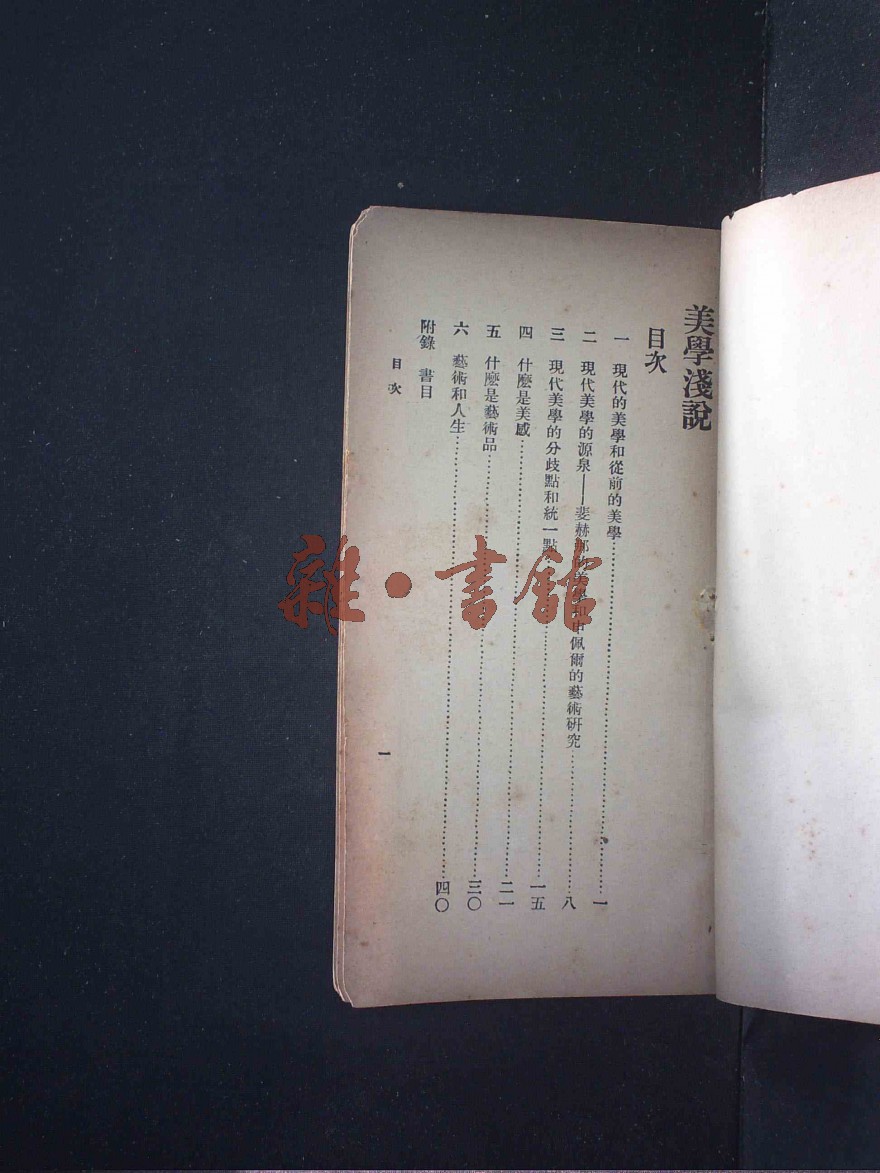 美學淺說
目次
一 現代的美學和從前的美學……一
二 現代美學的源泉——斐赫那的美學和申佩爾的藝術硏究……八
三 現代美學的分歧點和統一點……一五
四 什麽是美感……二一
五 什麽是藝術品……三〇
六 藝術和人生……四〇
附錄 書目
目次
一
雜·書館